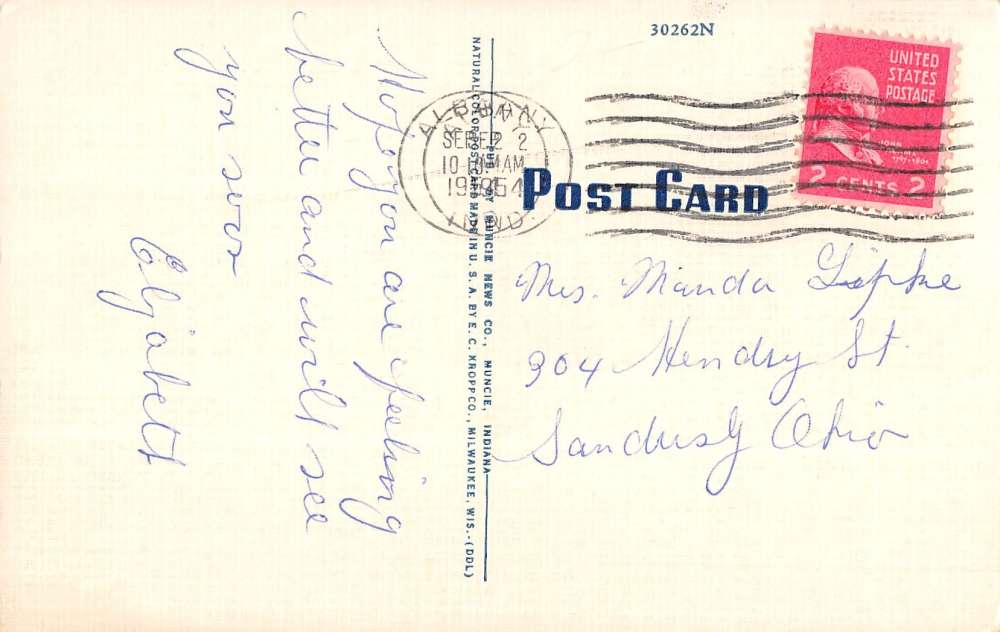 30262N
UNITED
STATES
POSTAGE
JOHN
2 CENTS 2
ALBANY
SEP 22
10 AM
1954
IND.
POST CARD
PUB. BY MUNCIE NEWS CO., MUNCIE, INDIANA
NATURAL COLOR POST CARD MADE IN U. S. A. BY E. C. KROPP CO., MILWAUKEE, WIS.-(DDL)
Hope you are feeling
better and will see
you soon
Elizabett
Mrs. Manda Lipke
904 Hendry St.
Sandusy Ohio